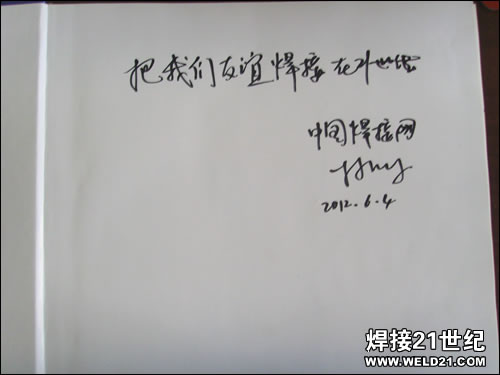 把我们友谊焊接在21世纪
中国焊接网
2012.6.4
焊接21世纪
WWW.WELD21.COM